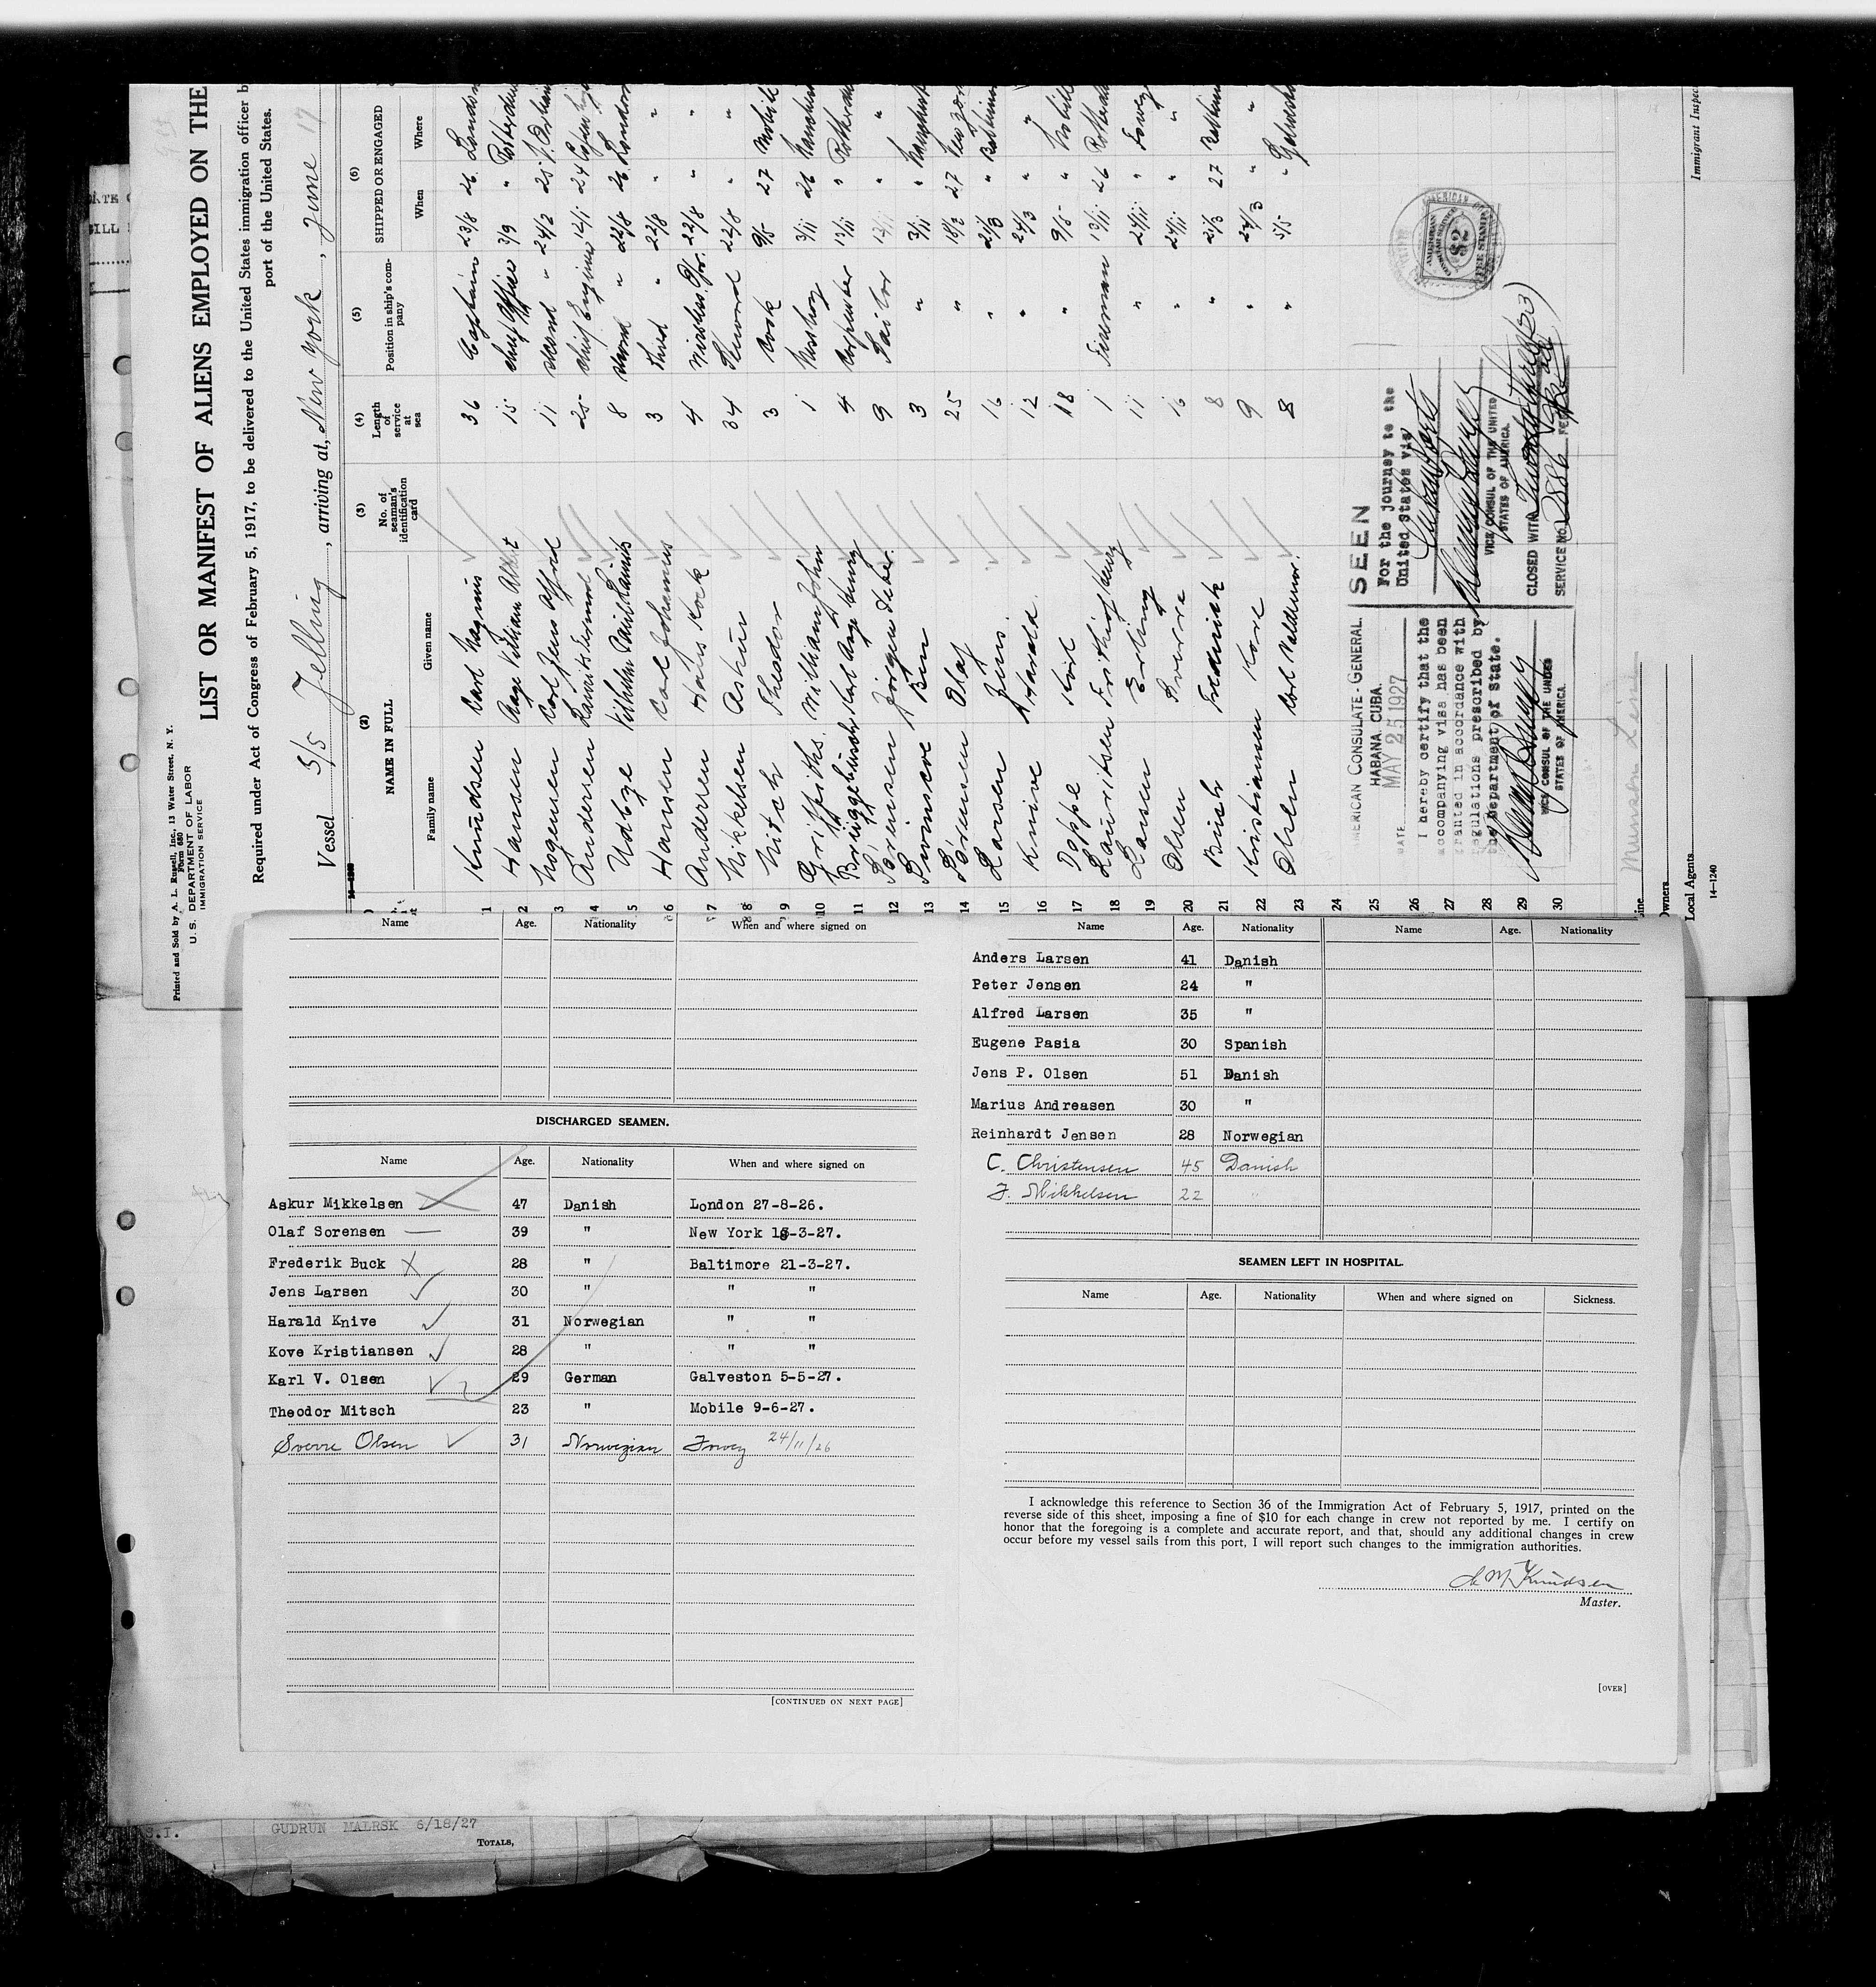 Printed and Sold by A. L. Russell, Inc., 13 Water Street, N. Y.
Form 680
U. S. DEPARTMENT OF LABOR
IMMIGRATION SERVICE
LIST OR MANIFEST OF ALIENS EMPLOYED ON THE
Required under Act of Congress of February 5, 1917, to be delivered to the United States immigration officer b
port of the United States.
Vessel S/S Jelling, arriving at, New York, June 17
(2) (3) (4) (5) (6)
NAME IN FULL No. of seaman's identification card Length of service at sea Position in ship's company SHIPPED OR ENGAGED
Family name Given name When Where
1 Knudsen Carl Magnus 36 Captain 23/8 26 London
2 Hansen Aage Villiam Albert 15 Chief Officer 3/9 " Rotterdam
3 Mogensen Carl Jens Alfred 11 Second " 24/2 25
4 Andersen Laurits Ejnard 25 Chief Engineer 14/1 24
5 Udbye Vilhelm Paul Laurits 8 Second " 22/8 26 London
6 Hansen Carl Johannes 3 Third " 22/8 " "
7 Andersen Hans Kock 4 Wireless Opr. 22/8 " "
8 Mikkelsen Askur 34 Steward 22/8 " "
9 Mitch Theodor 3 Cook 9/5 27 Mobile
10 Griffiths William John 1 Messboy 3/11 26
11 Brüggebusch Karl Aage Henry 4 Carpenter 13/11 " Rotterdam
12 Sörensen Jörgen Peder 9 Sailor 13/11 " "
13 Ben 3 " 3/11 "
14 Sörensen Olaf 25 " 18/3 27 New York
15 Larsen Jens 16 " 21/3 " Baltimore
16 Knive Harald 12 " 24/3 " "
17 Doppe Karl 18 " 9/5 " Mobile
18 Lauritsen Frithjof Henry 1 Fireman 13/11 26 Rotterdam
19 Larsen Erling 11 " 24/11 " Fowey
20 Olsen Sverre 16 " 24/11 " "
21 Buch Frederick 8 " 21/3 27 Baltimore
22 Kristiansen Kove 9 " 24/3 " "
23 Olsen Carl Valdemar 8 " 5/5 " Galveston
24
25
26
27
28
29
30
AMERICAN CONSULATE-GENERAL.
HABANA, CUBA.
DATE MAY 25 1927
I hereby certify that the
accompanying visa has been
granted in accordance with
regulations prescribed by
the Department of State.
VICE CONSUL OF THE UNITED
STATES OF AMERICA.
SEEN
For the journey to the
United States via
VICE CONSUL OF THE UNITED
STATES OF AMERICA.
CLOSED WITH
SERVICE NO. 2886
AMERICAN
$2
FEE STAMP
Line Munson Line
Owners
Local Agents
14—1240
Immigrant Inspec
Name Age. Nationality When and where signed on
DISCHARGED SEAMEN.
Name Age. Nationality When and where signed on
Askur Mikkelsen 47 Danish London 27-8-26.
Olaf Sorensen 39 " New York 18-3-27.
Frederik Buck 28 " Baltimore 21-3-27.
Jens Larsen 30 " " "
Harald Knive 31 Norwegian " "
Kove Kristiansen 28 " " "
Karl V. Olsen 29 German Galveston 5-5-27.
Theodor Mitsch 23 " Mobile 9-6-27.
Sverre Olsen 31 Norwegian Fowey 24/11/26
[CONTINUED ON NEXT PAGE]
Name Age. Nationality Name Age. Nationality
Anders Larsen 41 Danish
Peter Jensen 24 "
Alfred Larsen 35 "
Eugene Pasia 30 Spanish
Jens P. Olsen 51 Danish
Marius Andreasen 30 "
Reinhardt Jensen 28 Norwegian
C. Christensen 45 Danish
F. Mikkelsen 22 "
SEAMEN LEFT IN HOSPITAL.
Name Age. Nationality When and where signed on Sickness.
I acknowledge this reference to Section 36 of the Immigration Act of February 5, 1917, printed on the
reverse side of this sheet, imposing a fine of $10 for each change in crew not reported by me. I certify on
honor that the foregoing is a complete and accurate report, and that, should any additional changes in crew
occur before my vessel sails from this port, I will report such changes to the immigration authorities.
C M Knudsen
Master.
[OVER]
S.I.
GUDRUN MAERSK 6/18/27
TOTALS,